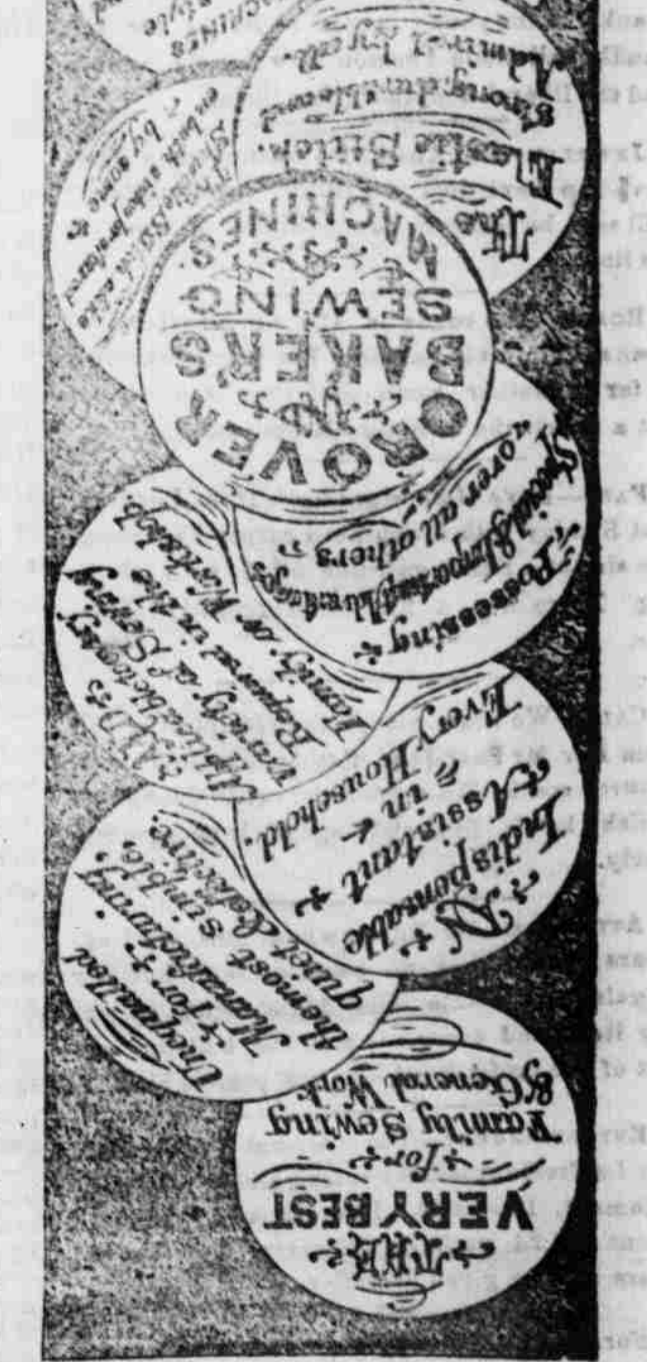 THE
VERY BEST
for
Family Sewing
& General Work
Unequalled
for
Manufacturing,
the most simple,
quiet & effective.
AN
Indispensable
Assistant
in
Every Household.
AND
Applicable to every
variety of Sewing
Required in the
Family or Workshop.
Possessing
Special & Important Advantages
over all others
GROVER
BAKER'S
SEWING
MACHINES.
The
Elastic Stitch.
Strong, durable and
Admired by all
Shuttle Stitch alike
on both sides preferred
by some
MACHINES
style